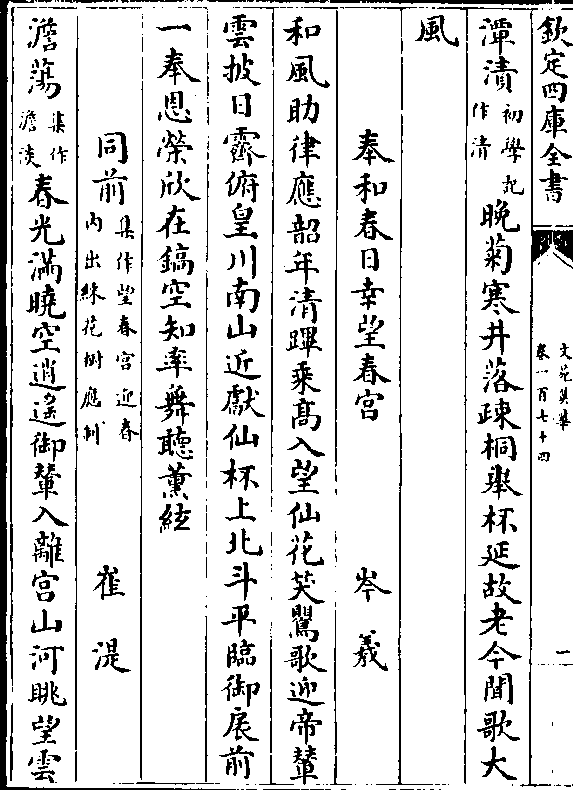 欽定四庫全書
文苑英華
卷一百七十四
一
潭漬初學記作清晚菊寒井落疎桐舉杯延故老今聞歌大
風
奉和春日幸望春宫 岑羲
和風助律應韶年清蹕乗髙入望仙花笑鸎歌迎帝輦
雲披日霽俯皇川南山近獻仙杯上北斗平臨御扆前
一奉恩榮欣在鎬空知率舞聽薫絃
同前集作望春宫迎春内出綵花樹應制 崔湜
澹蕩集作澹淡春光滿曉空逍遙御輦入離宫山河眺望雲